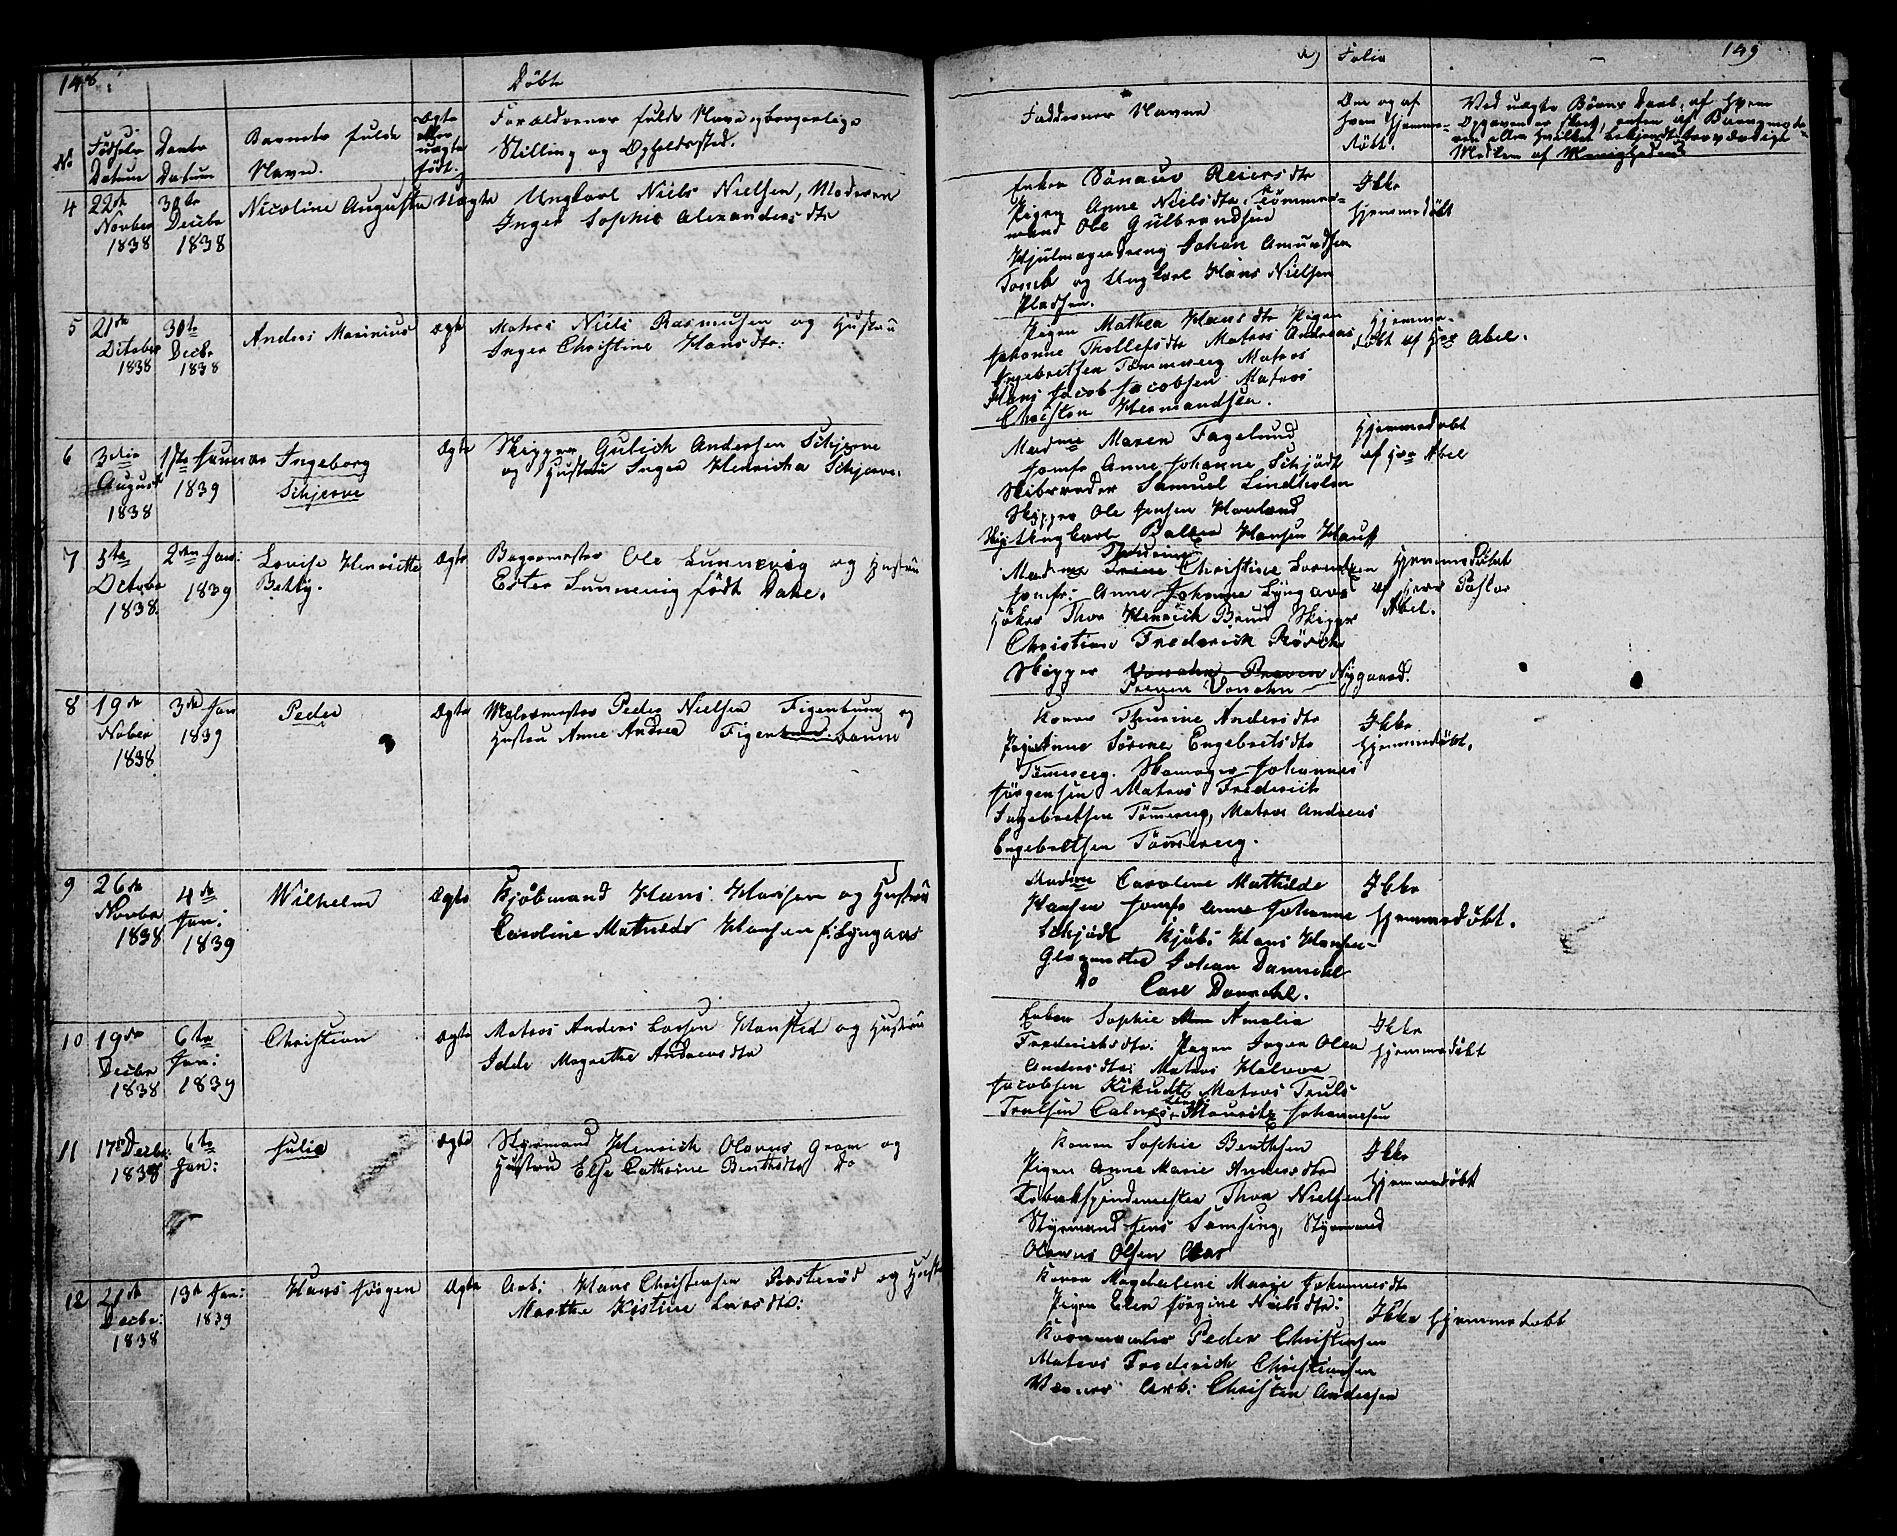 148
Døbte
No
Fødsels
Datum
Daabs
Datum
Barnets fulde
Navn.
Ægte
eller
uægte
født.
Forældrenes fulde Navn, borgerlige
Stilling og Opholdssted.
4
22de
Novbr
1838
30te
Decbr
1838
Nicoline Augusta
Uægte
Ungkarl Niels Nielsen, Moderen
Inger Sophie Alexandersdtr
5
21de
October
1838
30te
Decbr
1838
Anders Marinius
Ægte
Matros Niels Rasmusen og Hustru
Inger Christine Hansdtr:
6
3die
August
1838
1ste Januar
1839
Ingeborg
Schjerve
Ægte
Skipper Gulich Andersen Schjerve
og Hustru Inger Henricha Schjerve.
7
5te
Octobr
1838
2den Jan:
1839
Lovise Henriette
Betty.
Ægte
Bagermester Ole Lunnevig og Hustru
Ester Lunnevig født Dahl.
8
19de
Nobr
1838
3de Jan
1839
Peder
Ægte
Peder Nielsen Figenbaum og
Hustru Anne Andrea Figenbaum
9
26de
Novbr
1838
4de
Jan:
1839
Wilhelm
Ægte
Kjøbmand Hans Hansen og Hustru
Caroline Mathilde Hansen f: Lyngaas
10
19de
Decbr
1838
6te
Jan:
1839
Christian
Ægte
Matros Anders Larsen Hansted og Hustru
Idde Magrethe Andreasdtr
11
17de Decbr:
1838
6te
Jan:
Julie
Ægte
Styrmand Henrich Olaves Gram og
Hustru Else Cathrine Berthsdtr Do
12
21de
Decbr:
1838
13de Jan:
1839
Hans Jørgen
Ægte
Arb: Hans Christensen og Hustr
Marthe Kistine Larsdtr:
a) Folio
149
Faddernes Navne
Om og af
hvem hjemme-
døbt.
Ved uægte Børns Daab, af hvem
Opgavender skeet, enten af Barnemode-
ren eller hvilket bekjendt troværdigt
Medlem af Menigheden
Enken Reiersdtr
Pigen Anne Nielsdtr, Tømmer-
mand Ole Gulbrandsen
Hjulmagerdreng Johan Amundsen
Tomb og Ungkarl Hans Nielsen
Pladsen.
Ikke
hjemmedøbt
Pigen Mathea Hansdtr Pigen
Johanne Thollefsdtr Matros Andreas
Engebretsen Tømmerveg Matros
Hans Jacob Jacobsen Matros
Christen Hermandsen.
Hjemme-
døbt af Hrr Abel.
Madme Maren Fagelund
Jomfr Anne Johanne Schjødt
Skibsreder Samuel Lindholm
Skipper Ole Jensen Hovland
Ungkarl Hansen
Hjemmedøbt
af Hrr Abel
Thurine
Madme Trine Christine Lorentzen
Jomfr: Anne Johanne Lyngaas
Høker Thor Henrich Brun Skipper
Christian Frederich Rörich
Skipper Vonahn Preven Nygaard.
Preven Vonahn
Hjemmedøbt
af Herr Pastor
Abel.
Konen Thurine Andersdtr
Pigen Anne Sörine Engebretsdtr
Tömerveg. Skomager Johannes
Jørgensen Matros Frederich
Ingebretsen Tömerveg, Matros Andreas
Engebretsen Tömerveg.
Ikke
hjemmedøbt.
Madme Caroline Mathilde
Hansen Jomfr Anne Johanne
Schjødt Kjøb: Hans Hansen
Johan Dannehl
Do Carl Dannehl.
Ikke
hjemmedøbt.
Enken Sophie Amalia
Frederichsdtr: Pigen Inger Olea
Andersdtr: Matros Halvor
Jacobsen Matros Truls
Trulsen Mauritz Johannesen
Ikke
hjemmedøbt
Konen Sophie Berthsen
Pigen Anne Marie Andersdtr
Tobakspindemester Thor Nielsen
Styrmand Jens Samsing, Styrmand
Olavus Olsen Aas
Ikke
hjemmedøbt
Konen Magdalene Marie Johannesdtr
Pigen Elen Jørgine Nielsdtr:
Peder Christensen
Matros Frederich Christiansen
Arb: Christen Andersen
Ikke hjemmedøbt